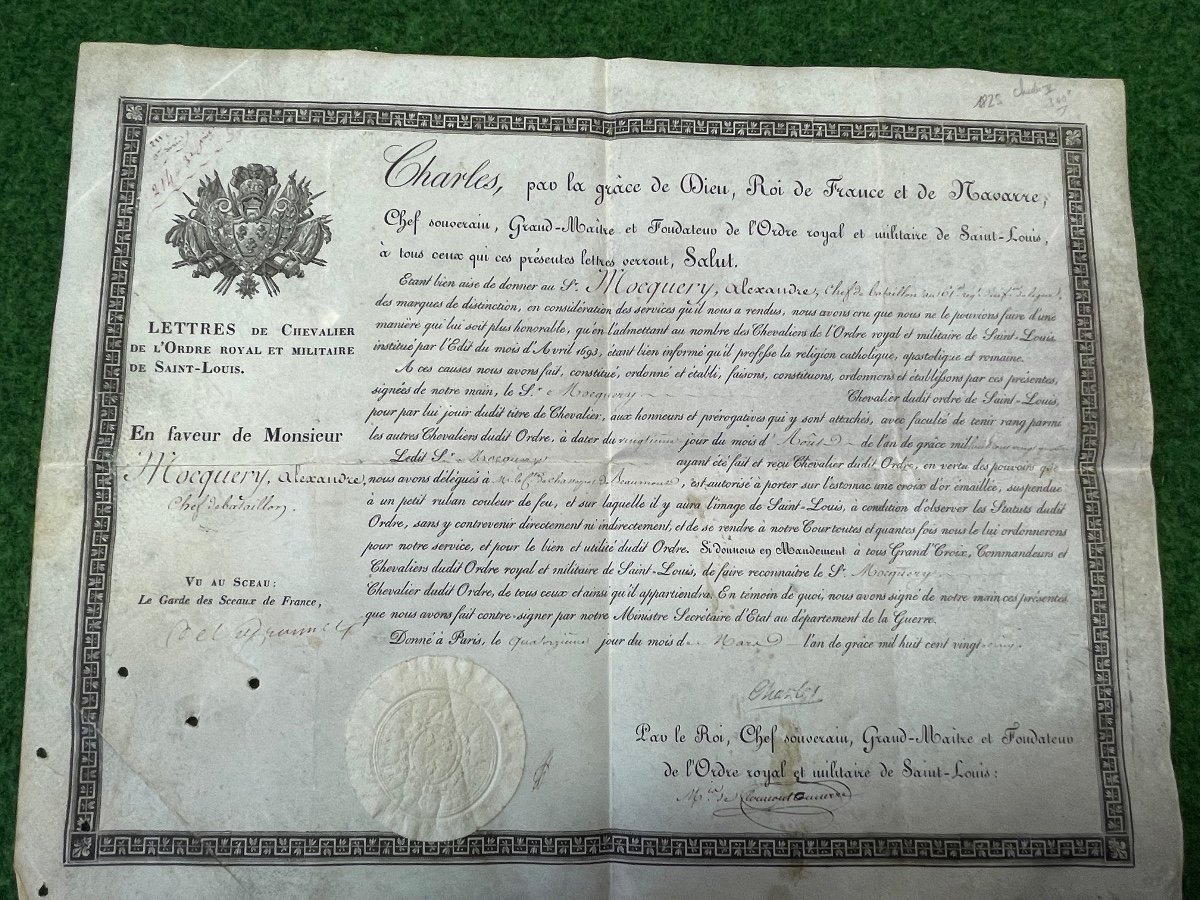 1825 Charles X
LETTRES DE CHEVALIER
DE L'ORDRE ROYAL ET MILITAIRE
DE SAINT-LOUIS.
En faveur de Monsieur
Mocquery, Alexandre,
Chef de bataillon.
VU AU SCEAU:
Le Garde des Sceaux de France,
Charles, par la grâce de Dieu, Roi de France et de Navarre,
Chef souverain, Grand-Maître et Fondateur de l'Ordre royal et militaire de Saint-Louis,
à tous ceux qui ces présentes lettres verront, Salut.
Etant bien aise de donner au Sr. Mocquery, Alexandre, Chef de bataillon au 61e regt d'infie de ligne,
des marques de distinction, en considération des services qu'il nous a rendus, nous avons cru que nous ne le pouvions faire d'une
manière qui lui soit plus honorable, qu'en l'admettant au nombre des Chevaliers de l'Ordre royal et militaire de Saint-Louis
institué par l'Edit du mois d'Avril 1693, étant bien informé qu'il professe la religion catholique, apostolique et romaine.
A ces causes nous avons fait, constitué, ordonné et établi, faisons, constituons, ordonnons et établissons par ces présentes,
signées de notre main, le Sr. Mocquery Chevalier dudit ordre de Saint-Louis,
pour par lui jouir dudit titre de Chevalier, aux honneurs et prérogatives qui y sont attachés, avec faculté de tenir rang parmi
les autres Chevaliers dudit Ordre, à dater du vingtième jour du mois d'Août de l'an de grâce mil huit cent vingt
Ledit Sr. Mocquery ayant été fait et reçu Chevalier dudit Ordre, en vertu des pouvoirs que
nous avons délégués à de Beaumont, est autorisé à porter sur l'estomac une croix d'or émaillée, suspendue
à un petit ruban couleur de feu, et sur laquelle il y aura l'image de Saint-Louis, à condition d'observer les Statuts dudit
Ordre, sans y contrevenir directement ni indirectement, et de se rendre à notre Cour toutes et quantes fois nous le lui ordonnerons
pour notre service, et pour le bien et utilité dudit Ordre. Si donnons en Mandement à tous Grand'Croix, Commandeurs et
Chevaliers dudit Ordre royal et militaire de Saint-Louis, de faire reconnaître le Sr. Mocquery
Chevalier dudit Ordre, de tous ceux et ainsi qu'il appartiendra. En témoin de quoi, nous avons signé de notre main ces présentes
que nous avons fait contre-signer par notre Ministre Secrétaire d'Etat au département de la Guerre.
Donné à Paris, le Quatorzième jour du mois de Mars l'an de grâce mil huit cent vingt-cinq.
Charles
Par le Roi, Chef souverain, Grand-Maître et Fondateur
de l'Ordre royal et militaire de Saint-Louis:
Mis de Clermont Tonnerre